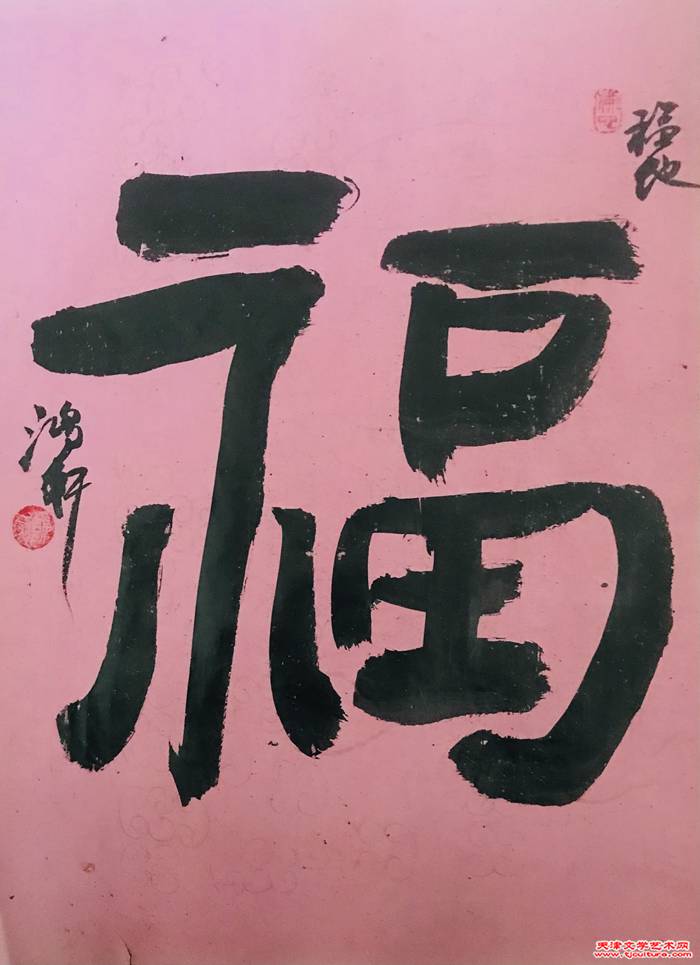 福
福地
鸿轩
天津文学艺术网
www.tjculture.com